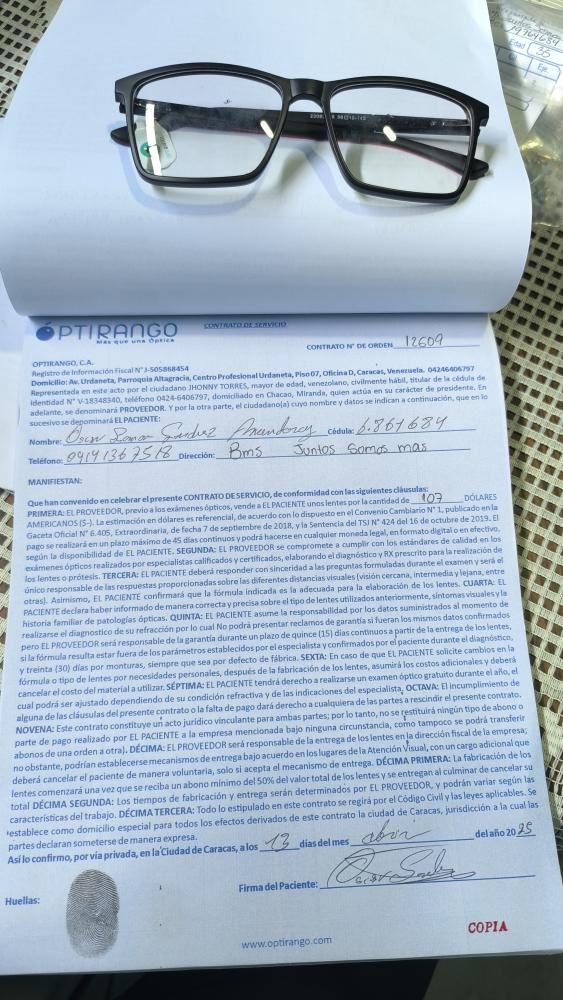 Edad 35
OPTIRANGO
Más que una Óptica
CONTRATO DE SERVICIO
CONTRATO N° DE ORDEN 12609
OPTIRANGO, C.A.
Registro de Información Fiscal N° J-505868454
Domicilio: Av. Urdaneta, Parroquia Altagracia, Centro Profesional Urdaneta, Piso 07, Oficina D, Caracas, Venezuela. 04246406797
Representada en este acto por el ciudadano JHONNY TORRES, mayor de edad, venezolano, civilmente hábil, titular de la cédula de
Identidad N° V-18348340, teléfono 0424-6406797, domiciliado en Chacao, Miranda, quien actúa en su carácter de presidente. En
adelante, se denominará PROVEEDOR. Y por la parte otra, el ciudadano(a) cuyo nombre y datos se indican a continuación, que en lo
sucesivo se denominará EL PACIENTE:
Nombre: Oscar Ramon Sanchez Cédula: 6.861684
Teléfono: 04141367518 Dirección: Bms Juntos Somos mas
MANIFIESTAN:
Que han convenido en celebrar el presente CONTRATO DE SERVICIO, de conformidad con las siguientes cláusulas:
PRIMERA: EL PROVEEDOR, previo a los exámenes ópticos, vende a EL PACIENTE unos lentes por la cantidad de 107 DÓLARES
AMERICANOS ($-). La estimación en dólares es referencial, de acuerdo con lo dispuesto en el Convenio Cambiario N° 1, publicado en la
Gaceta Oficial N° 6.405, Extraordinaria, de fecha 7 de septiembre de 2018, y la Sentencia del TSJ N° 424 del 16 de octubre de 2019. El
pago se realizará en un plazo máximo de 45 días continuos y podrá hacerse en cualquier moneda legal, en formato digital o en efectivo,
según la disponibilidad de EL PACIENTE. SEGUNDA: EL PROVEEDOR se compromete a cumplir con los estándares de calidad en los
exámenes ópticos realizados por especialistas calificados y certificados, elaborando el diagnóstico y RX prescrito para la realización de
los lentes o prótesis. TERCERA: EL PACIENTE deberá responder con sinceridad a las preguntas formuladas durante el examen y será el
único responsable de las respuestas proporcionadas sobre las diferentes distancias visuales (visión cercana, intermedia y lejana, entre
otras). Asimismo, EL PACIENTE confirmará que la fórmula indicada es la adecuada para la elaboración de los lentes. CUARTA: EL
PACIENTE declara haber informado de manera correcta y precisa sobre el tipo de lentes utilizados anteriormente, síntomas visuales y la
historia familiar de patologías ópticas. QUINTA: EL PACIENTE asume la responsabilidad por los datos suministrados al momento de
realizarse el diagnostico de su refracción por lo cual No podrá presentar reclamos de garantía si fueran los mismos datos confirmados
pero EL PROVEEDOR será responsable de la garantía durante un plazo de quince (15) días continuos a partir de la entrega de los lentes,
si la fórmula resulta estar fuera de los parámetros establecidos por el especialista y confirmados por el paciente durante el diagnóstico,
y treinta (30) días por monturas, siempre que sea por defecto de fábrica. SEXTA: En caso de que EL PACIENTE solicite cambios en la
fórmula o tipo de lentes por necesidades personales, después de la fabricación de los lentes, asumirá los costos adicionales y deberá
cancelar el costo del material a utilizar. SÉPTIMA: EL PACIENTE tendrá derecho a realizarse un examen óptico gratuito durante el año, el
cual podrá ser ajustado dependiendo de su condición refractiva y de las indicaciones del especialista. OCTAVA: El incumplimiento de
alguna de las cláusulas del presente contrato o la falta de pago dará derecho a cualquiera de las partes a rescindir el presente contrato.
NOVENA: Este contrato constituye un acto jurídico vinculante para ambas partes; por lo tanto, no se restituirá ningún tipo de abono o
parte de pago realizado por EL PACIENTE a la empresa mencionada bajo ninguna circunstancia, como tampoco se podrá transferir
abonos de una orden a otra). DÉCIMA: EL PROVEEDOR será responsable de la entrega de los lentes en la dirección fiscal de la empresa;
no obstante, podrían establecerse mecanismos de entrega bajo acuerdo en los lugares de la Atención Visual, con un cargo adicional que
deberá cancelar el paciente de manera voluntaria, solo si acepta el mecanismo de entrega. DÉCIMA PRIMERA: La fabricación de los
lentes comenzará una vez que se reciba un abono mínimo del 50% del valor total de los lentes y se entregan al culminar de cancelar su
total DÉCIMA SEGUNDA: Los tiempos de fabricación y entrega serán determinados por EL PROVEEDOR, y podrán variar según las
características del trabajo. DÉCIMA TERCERA: Todo lo estipulado en este contrato se regirá por el Código Civil y las leyes aplicables. Se
establece como domicilio especial para todos los efectos derivados de este contrato la ciudad de Caracas, jurisdicción a la cual las
partes declaran someterse de manera expresa.
Así lo confirmo, por vía privada, en la Ciudad de Caracas, a los 13 días del mes abril del año 2025
Firma del Paciente:
Huellas:
COPIA
www.optirango.com